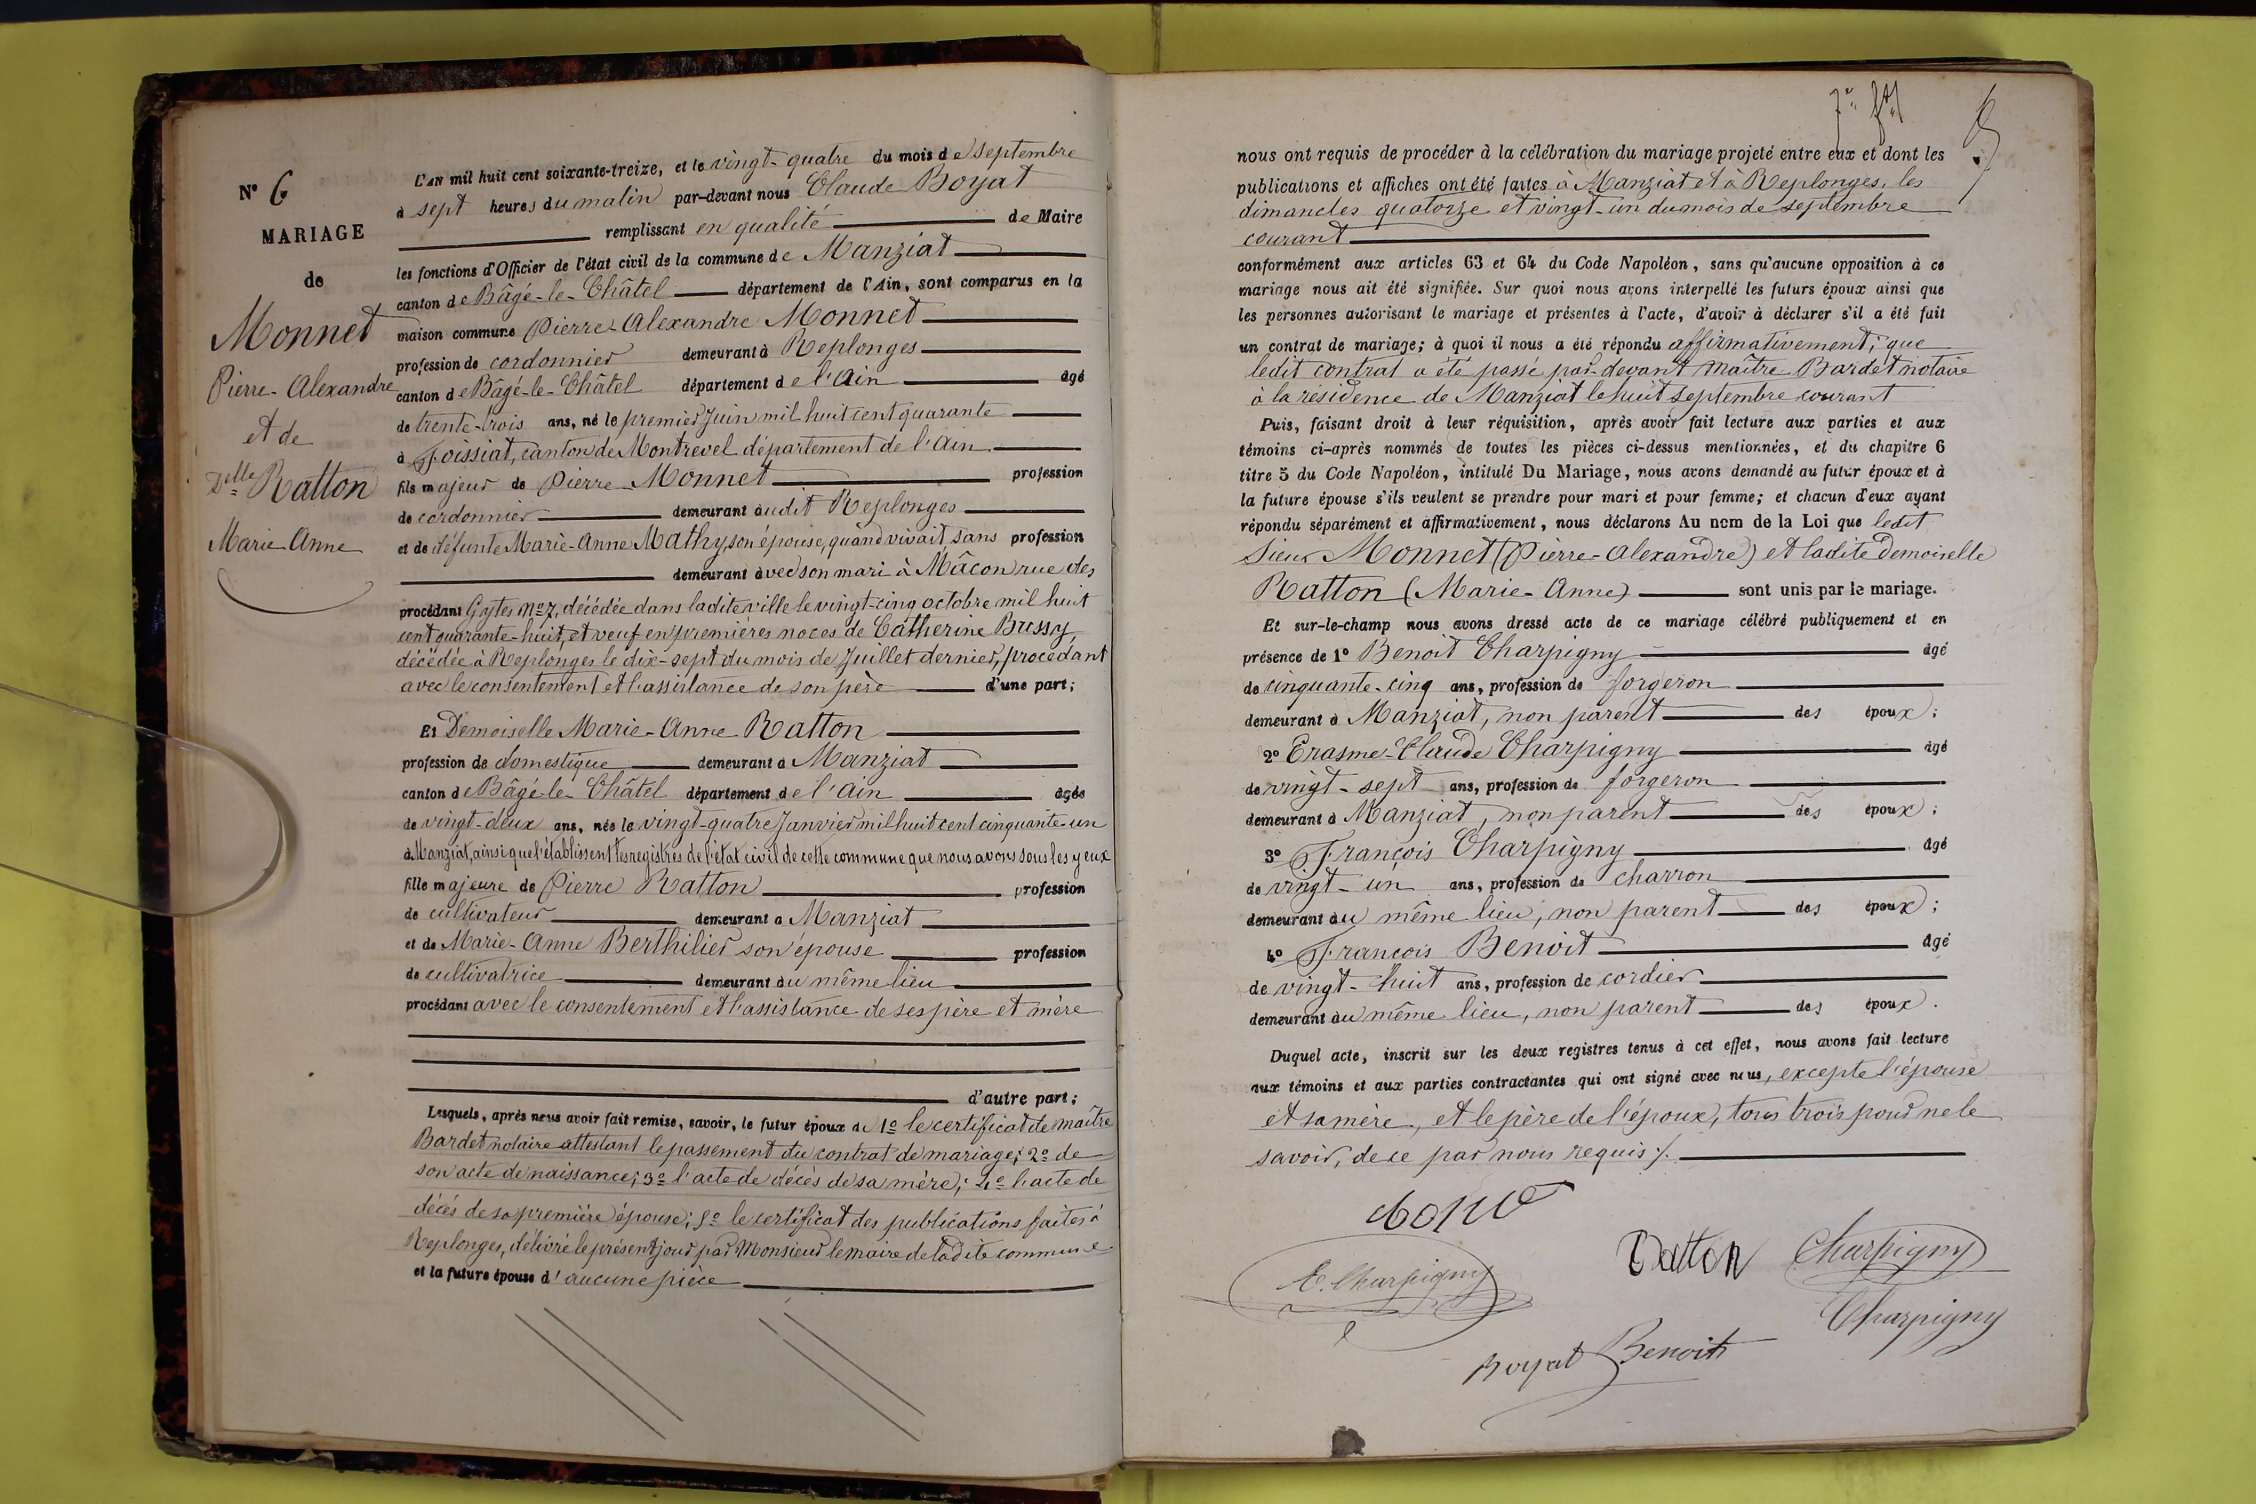 N° 6
MARIAGE
de
Monnet
Pierre-Alexandre
et de
Delle Ratton
Marie-Anne
L'an mil huit cent soixante-treize, et le vingt-quatre du mois de septembre
à sept heures du matin par-devant nous Claude Boyat
remplissant en qualité de Maire
les fonctions d'Officier de l'état civil de la commune de Manziat
canton de Bâgé-le-Châtel département de l'Ain, sont comparus en la
maison commune Pierre-Alexandre Monnet
profession de cordonnier demeurant à Replonges
canton de Bâgé-le-Châtel département de l'Ain âgé
de trente-trois ans, né le premier Juin mil huit cent quarante
à Foissiat, canton de Montrevel département de l'Ain
fils majeur de Pierre Monnet profession
de cordonnier demeurant audit Replonges
et de défunte Marie-Anne Mathy, son épouse, quand vivait sans profession
demeurant avec son mari à Mâcon rue des
procédant Gytes N° 7, décédée dans ladite ville le vingt-cinq octobre mil huit
cent quarante-huit, et veuf en premières noces de Catherine Bussy,
décédée à Replonges le dix-sept du mois de Juillet dernier, procédant
avec le consentement et l'assistance de son père d'une part;
Et Demoiselle Marie-Anne Ratton
profession de domestique demeurant à Manziat
canton de Bâgé-le-Châtel département de l'Ain âgée
de vingt-deux ans, née le vingt-quatre Janvier mil huit cent cinquante-un
à Manziat, ainsi que l'établissent les registres de l'état civil de cette commune que nous avons sous les yeux
fille majeure de Pierre Ratton profession
de cultivateur demeurant à Manziat
et de Marie-Anne Berthilier son épouse profession
de cultivatrice demeurant au même lieu
procédant avec le consentement et l'assistance de ses père et mère
d'autre part;
Lesquels, après nous avoir fait remise, savoir, le futur époux de 1° le certificat de maître
Bardet notaire attestant le passement du contrat de mariage; 2° de
son acte de naissance; 3° l'acte de décès de sa mère; 4° l'acte de
décès de sa première épouse; 5° le certificat des publications faites à
Replonges, délivré le présent jour par Monsieur le maire de ladite commune
et la future épouse d'aucune pièce
nous ont requis de procéder à la célébration du mariage projeté entre eux et dont les
publications et affiches ont été faites à Manziat et à Replonges, les
dimanches quatorze et vingt-un du mois de septembre
courant
conformément aux articles 63 et 64 du Code Napoléon, sans qu'aucune opposition à ce
mariage nous ait été signifiée. Sur quoi nous avons interpellé les futurs époux ainsi que
les personnes autorisant le mariage et présentes à l'acte, d'avoir à déclarer s'il a été fait
un contrat de mariage; à quoi il nous a été répondu affirmativement; que
ledit contrat a été passé par-devant maître Bardet notaire
à la résidence de Manziat le huit septembre courant
Puis, faisant droit à leur réquisition, après avoir fait lecture aux parties et aux
témoins ci-après nommés de toutes les pièces ci-dessus mentionnées, et du chapitre 6
titre 5 du Code Napoléon, intitulé Du Mariage, nous avons demandé au futur époux et à
la future épouse s'ils veulent se prendre pour mari et pour femme; et chacun d'eux ayant
répondu séparément et affirmativement, nous déclarons Au nom de la Loi que ledit
Sieur Monnet (Pierre-Alexandre) et ladite Demoiselle
Ratton (Marie-Anne) sont unis par le mariage.
Et sur-le-champ nous avons dressé acte de ce mariage célébré publiquement et en
présence de 1° Benoit Charpigny âgé
de cinquante-cinq ans, profession de forgeron
demeurant à Manziat, non parent des époux;
2° Erasme-Claude Charpigny âgé
de vingt-sept ans, profession de forgeron
demeurant à Manziat, non parent des époux;
3° François Charpigny âgé
de vingt-un ans, profession de charron
demeurant au même lieu, non parent des époux;
4° François Benoit âgé
de vingt-huit ans, profession de cordier
demeurant au même lieu, non parent des époux.
Duquel acte, inscrit sur les deux registres tenus à cet effet, nous avons fait lecture
aux témoins et aux parties contractantes qui ont signé avec nous, excepté l'épouse
et sa mère, et le père de l'époux, tous trois pour ne le
savoir, de ce par nous requis ./.
Ratton
Charpigny
E. Charpigny
Charpigny
Boyat
Benoit